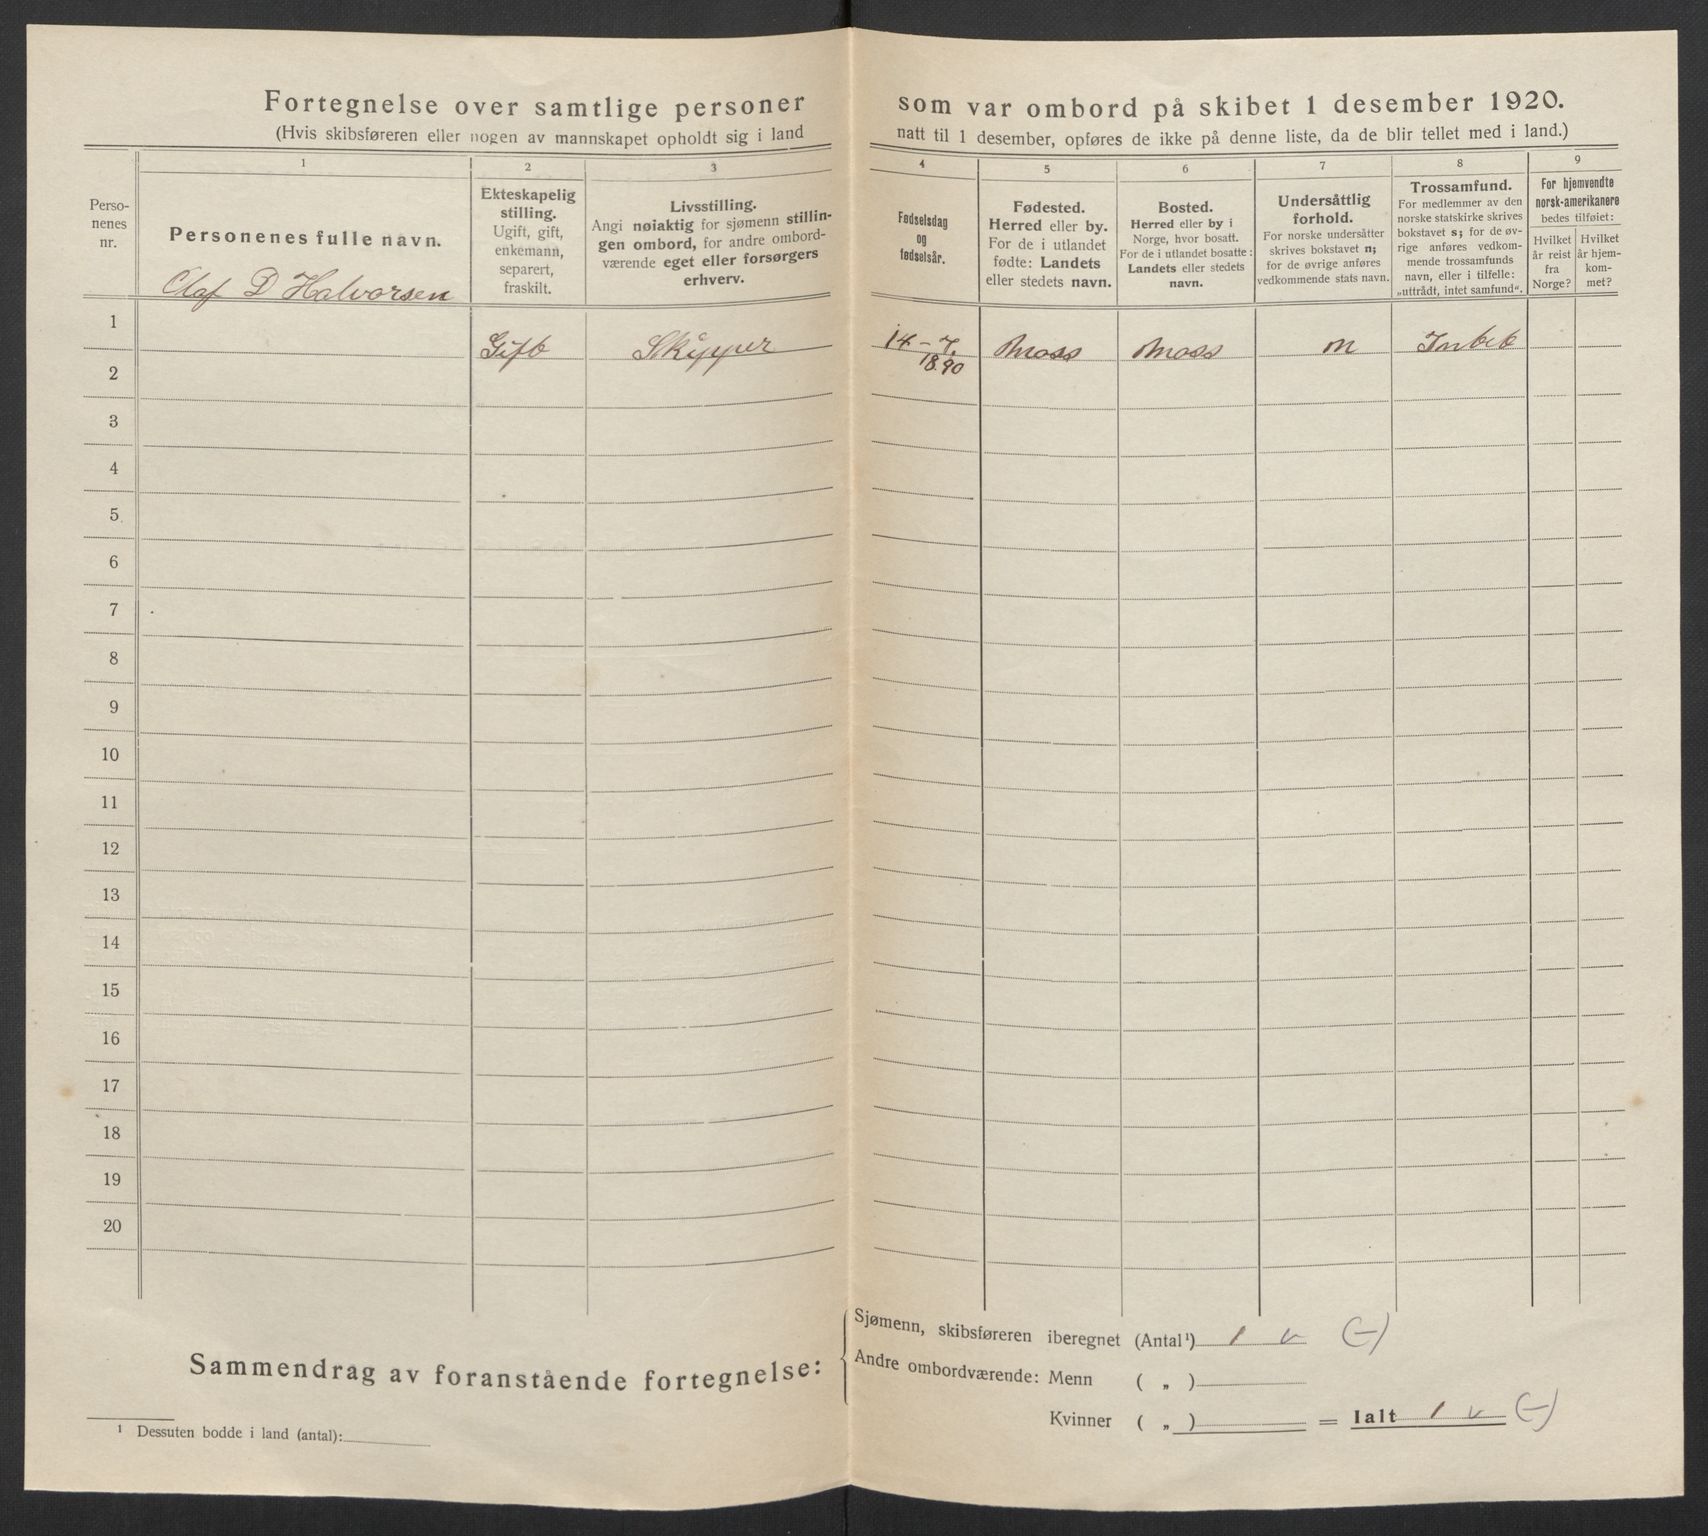 Fortegnelse over samtlige personer som var ombord på skibet 1 desember 1920.
(Hvis skibsføreren eller nogen av mannskapet opholdt sig i land natt til 1 desember, opføres de ikke på denne liste, da de blir tellet med i land.)
1 2 3 4 5 6 7 8 9
Perso-
nenes
nr.
Personenes fulle navn.
Ekteskapelig
stilling.
Ugift, gift,
enkemann,
separert,
fraskilt.
Livsstilling.
Angi nøiaktig for sjømenn stillin-
gen ombord, for andre ombord-
værende eget eller forsørgers
erhverv.
Fødselsdag
og
fødselsår.
Fødested.
Herred eller by.
For de i utlandet
fødte: Landets
eller stedets navn.
Bosted.
Herred eller by i
Norge, hvor bosatt.
For de i utlandet bosatte:
Landets eller stedets
navn.
Undersåttlig
forhold.
For norske undersåtter
skrives bokstavet n;
for de øvrige anføres
vedkommende stats navn.
Trossamfund.
For medlemmer av den
norske statskirke skrives
bokstavet s; for de øv-
rige anføres vedkom-
mende trossamfunds
navn, eller i tilfelle:
„uttrådt, intet samfund".
For hjemvendte
norsk-amerikanere
bedes tilføiet:
Hvilket
år reist
fra
Norge?
Hvilket
år hjem-
kom-
met?
Olaf D Halvorsen
1
Gift Skipper 14-7. Moss Moss n
1890
2
3
4
5
6
7
8
9
10
11
12
13
14
15
16
17
18
19
20
Sammendrag av foranstående fortegnelse:
Sjømenn, skibsføreren iberegnet (Antal¹) 1 v (-)
Andre ombordværende: Menn ( „ )
Kvinner ( „ ) = Ialt 1 v (-)
¹ Dessuten bodde i land (antal):